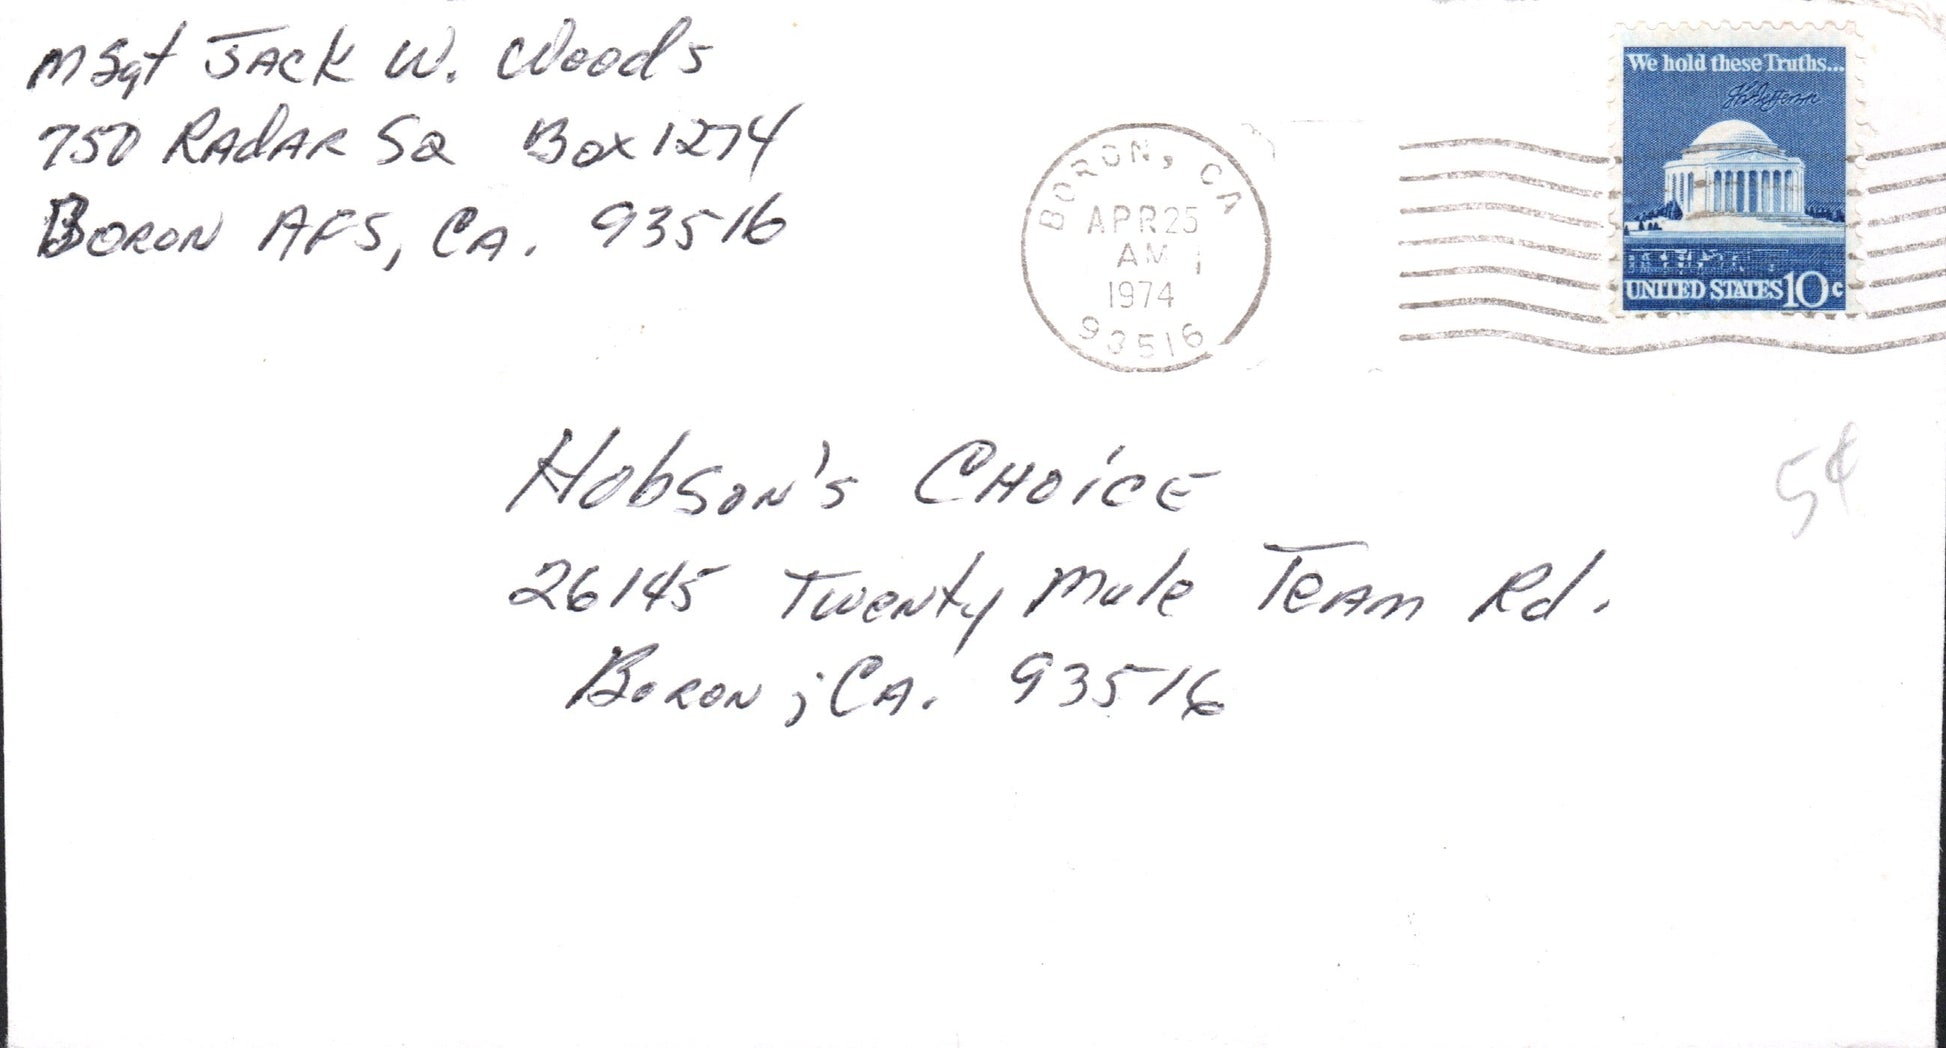 MSgt JACK W. Woods
750 RADAR SQ Box 1274
BORON AFS, CA. 93516
BORON, CA
APR 25
AM
1974
93516
We hold these Truths...
UNITED STATES 10c
5¢
HobSON'S CHOiCE
26145 Twenty Mule TEAM Rd.
BORON, CA. 93516